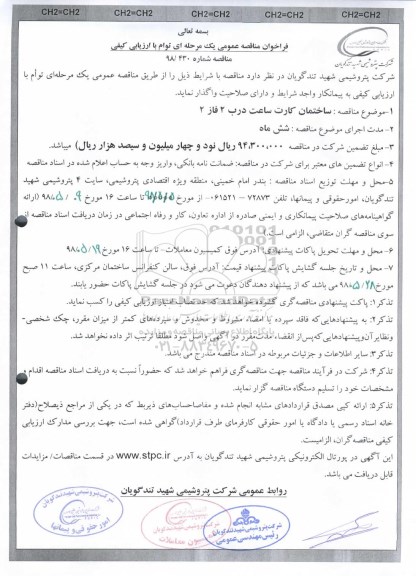 CH2=CH2 CH2=CH2 CH2=CH2 CH2=CH2 CH2=CH2
بسمه تعالی
فراخوان مناقصه عمومی یک مرحله ای توام با ارزیابی کیفی
مناقصه شماره ۹۸/۰۴۳۰
شرکت پتروشیمی شهید تندگویان در نظر دارد مناقصه با شرایط ذیل را از طریق مناقصه عمومی یک مرحله‌ای توأم با
ارزیابی کیفی به پیمانکار واجد شرایط و دارای صلاحیت واگذار نماید.
۱-موضوع مناقصه: ساختمان کارت ساعت درب ۲ فاز ۲
۲- مدت اجرای موضوع مناقصه: شش ماه
۳- مبلغ تضمین شرکت در مناقصه ۹۴,۳۰۰,۰۰۰ ریال نود و چهار میلیون و سیصد هزار ریال) میباشد.
۴-انواع تضمین های معتبر برای شرکت در مناقصه: ضمانت نامه بانکی، واریز وجه به حساب اعلام شده در اسناد مناقصه
۵-محل و مهلت توزیع اسناد مناقصه : بندر امام خمینی، منطقه ویژه اقتصادی پتروشیمی، سایت ۴ پتروشیمی شهید
تندگویان، امورحقوقی و پیمانها، تلفن ۷۲۸۷۳-۰۶۱۵۲۱ از مورخ تا ساعت ۱۶ مورخ ۹۸/۵/۰۹ (ارائه
گواهینامه‌های صلاحیت پیمانکاری و ایمنی صادره از اداره تعاون، کار و رفاه اجتماعی در زمان دریافت اسناد مناقصه از
سوی مناقصه گران متقاضی، الزامی است.)
۶- محل و مهلت تحویل پاکات پیشنهادی: آدرس فوق کمیسیون معاملات - تا ساعت ۱۶ مورخ ۹۸/۵/۱۹
۷- محل و تاریخ جلسه گشایش پاکات پیشنهاد قیمت: آدرس فوق، سالن کنفرانس ساختمان مرکزی، ساعت ۱۱ صبح
مورخ ۹۸/۵/۲۸ می باشد که از پیشنهاد دهندگان دعوت می شود در جلسه گشایش پاکات حضور یابند.
تذکر۱: پاکت پیشنهادی مناقصه‌گری گشوده خواهد شد که حد نصاب امتیاز ارزیابی کیفی را کسب نماید.
تذکر۲: به پیشنهادهایی که فاقد سپرده یا امضاء، مشروط و مخدوش و سپرده‌های کمتر از میزان مقرر، چک شخصی-
ونظایر آن وپیشنهادهایی که پس از انقضاء مدت مقرر در آگهی واصل شود مطلقا ترتیب اثر داده نخواهد شد.
تذکر۳: سایر اطلاعات و جزئیات مربوطه در اسناد مناقصه مندرج می باشد.
۰۲۱-۸۸۳۴۹۶۷۰-۵
تذکر۴: شرکت در فرآیند مناقصه جهت مناقصه‌گری فراهم خواهد شد که حضوراً نسبت به دریافت اسناد مناقصه اقدام و
مشخصات خود را تسلیم دستگاه مناقصه گزار نماید.
تذکر۵: ارائه کپی مصدق قراردادهای مشابه انجام شده و مفاصاحساب‌های ذیربط که در یکی از مراجع ذیصلاح(دفتر
خانه اسناد رسمی یا دادگاه یا امور حقوقی کارفرمای طرف قرارداد)گواهی شده است، جهت بررسی مدارک ارزیابی
کیفی مناقصه‌گران، الزامیست.
این آگهی در پورتال الکترونیکی پتروشیمی شهید تندگویان به آدرس www.stpc.ir در قسمت مناقصات/ مزایدات
قابل دریافت می باشد.
روابط عمومی شرکت پتروشیمی شهید تندگویان
شرکت پتروشیمی شهید تندگویان
امور حقوقی و پیمانها
کمیسیون معاملات
شرکت پتروشیمی شهید تندگویان
رئیس مهندسی عمومی